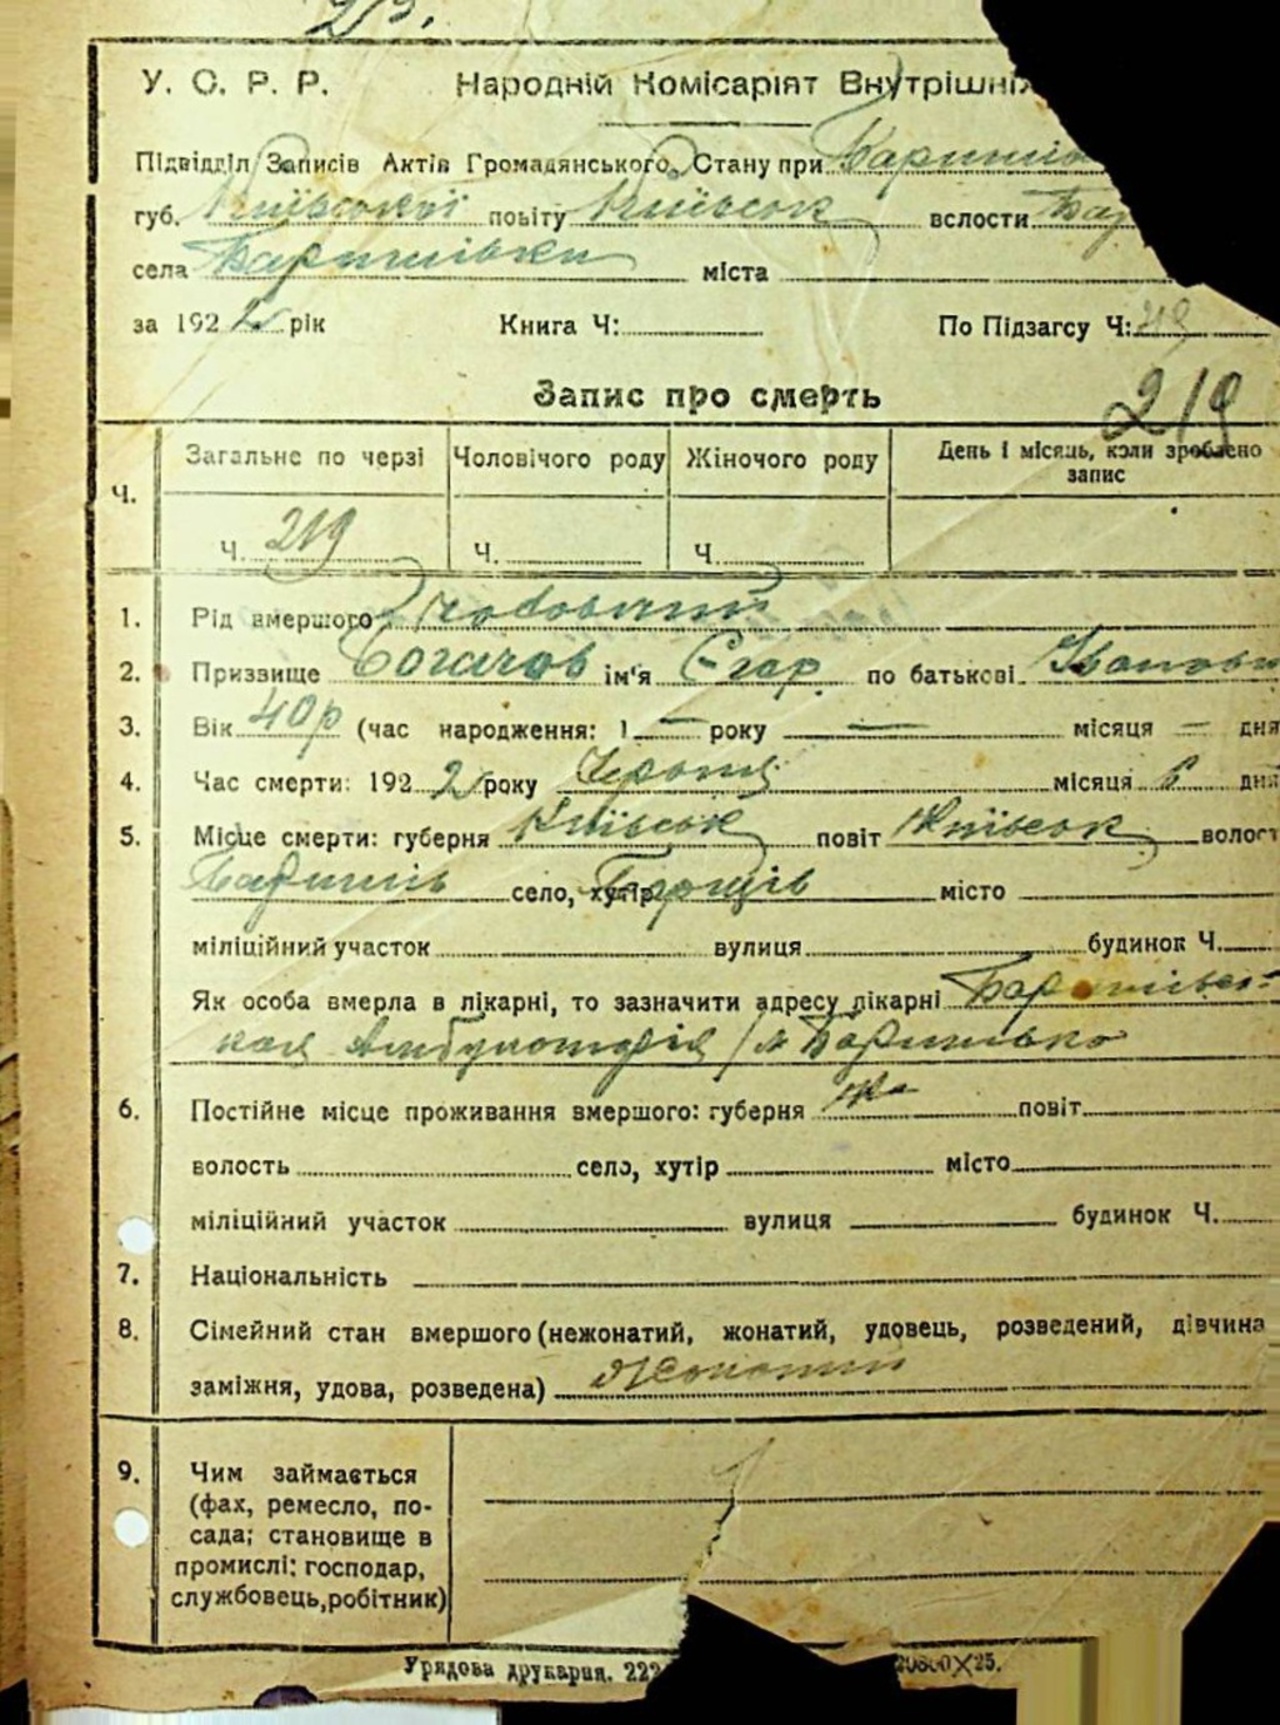 23.
У. С. Р. Р. Народній Комісаріят Внутрішніх
Підвідділ Записів Актів Громадянського Стану при Баришів
губ. Київської повіту Київськ вслости Бар
села Баришівки міста
за 1922 рік Книга Ч: По Підзагсу Ч: 219
Запис про смерть 219
Ч. Загальне по черзі Чоловічого роду Жіночого роду День і місяць, коли зроблено запис
Ч. 219 Ч. Ч.
1. Рід вмершого Чоловічий
2. Призвище Богачов ім'я Єгор по батькові Іванови
3. Вік 40 р (час народження: 1 — року — місяця — дня
4. Час смерти: 1922 року місяця 6 дня
5. Місце смерти: губерня Київськ повіт Київськ волост
Баришів село, хутір місто
міліційний участок вулиця будинок Ч.
Як особа вмерла в лікарні, то зазначити адресу лікарні Баришівсь-
кая Амбулаторія м Баришівка
6. Постійне місце проживання вмершого: губерня повіт
волость село, хутір місто
міліційний участок вулиця будинок Ч.
7. Національність
8. Сімейний стан вмершого (нежонатий, жонатий, удовець, розведений, дівчина
заміжня, удова, розведена) Жонатий
9. Чим займається
(фах, ремесло, по-
сада; становище в
промислі: господар,
службовець, робітник)
Урядова друкарня. 222 20800X25.